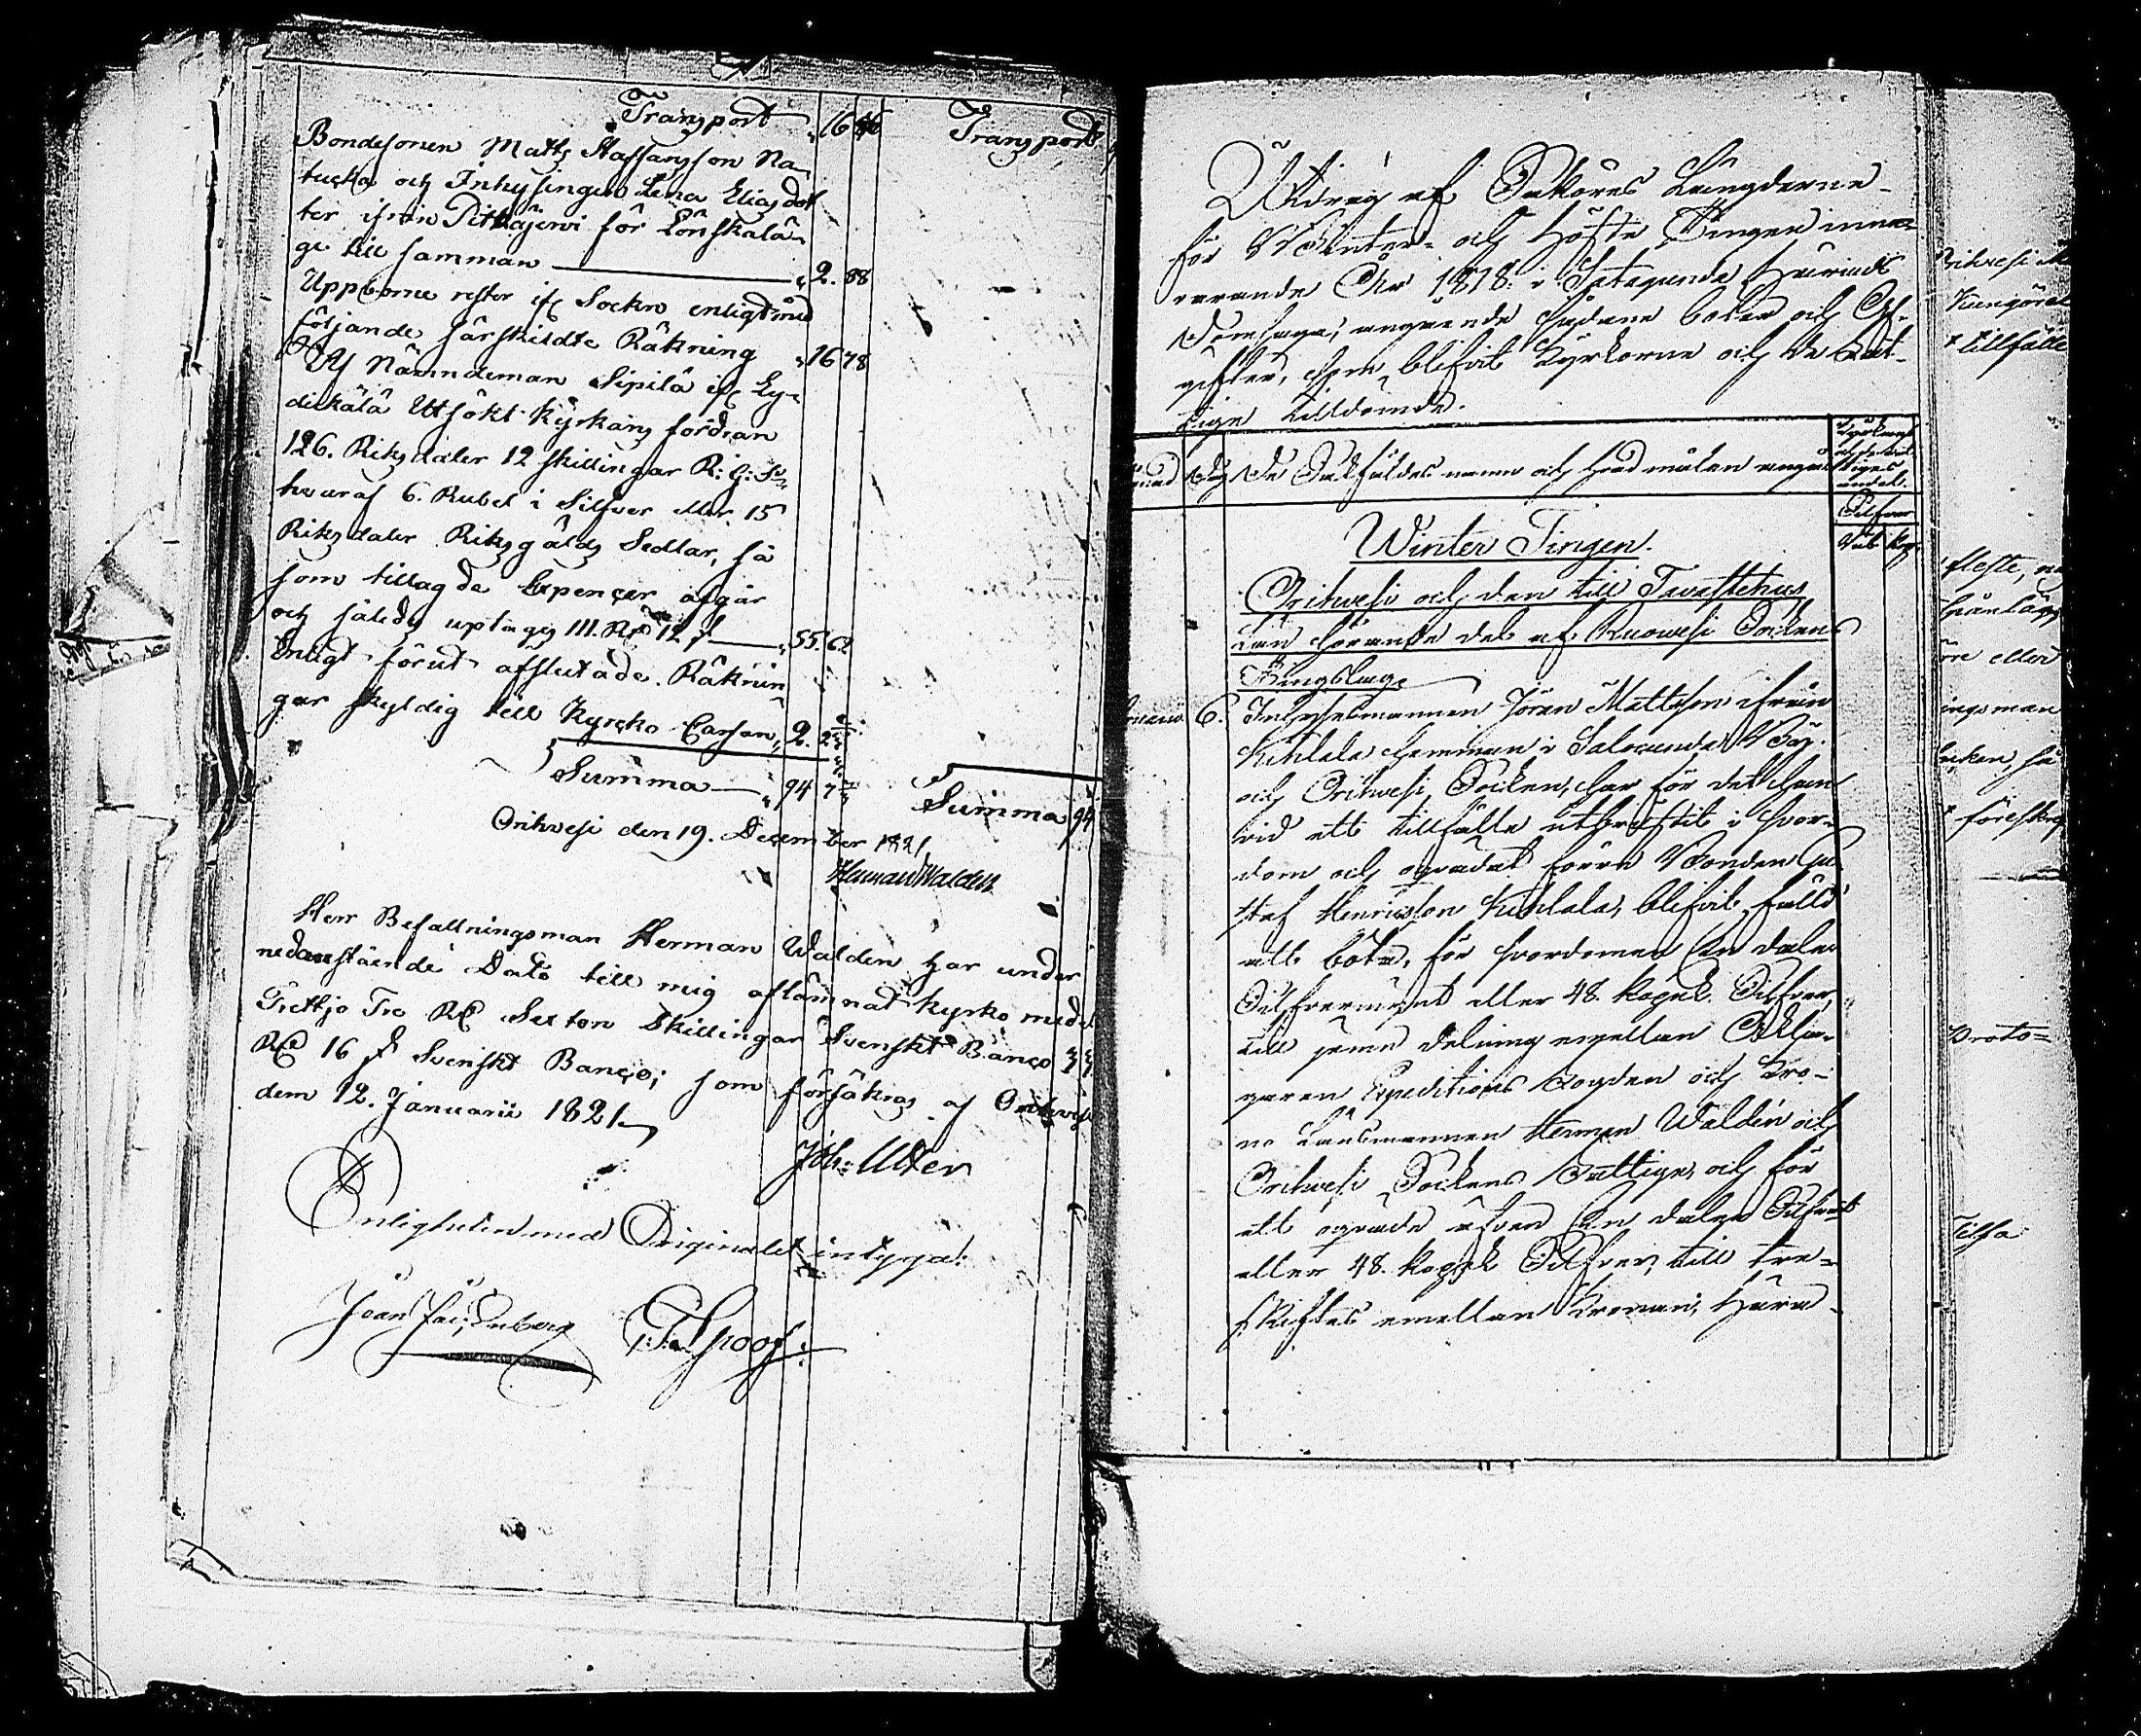 Transport 16 46
Bondesonen Matts Staffansson Na-
tucka och Inhysingen Lena Eliasdot
ter ifrån Pitkäjervi för Lönskalä-
ge till samman 2. 88
Uppborne rester if Sockn enligt med
följande särskildte Räkning 16 78
Af Nämndeman Sipilä if Ly-
dikälä Utsökt Kyrkans fordran
126. Riksdaler 12 skillingar R: g: S
hvaraf 6. Rubel i Silfver eller 15
Riksdaler Riksgälds Sedlar, så
som tillagde Expencer afgår
och således uptages 111. Rd 12 s 55. 62
Enligt förut afslutade Räknin
gar skyldig till Kyrcko Cassan, 2. 2
Summa 94 7
Orihvesi den 19. December 1821
Herman Waldén
Herr Befallningsman Herman Waldén har under
nedanstående Dato till mig aflämnat Kyrko medel
Trettjo Tre Rd Sexton Skillingar Svenskt Banco 33
Rd 16 s Svenskt Banco; som försäkras af Orihvesi
dem 12. Januarii 1821
Joh: Uter
Enligheten med Originalet intyga!
Transport
Summa 94
Utdrag af Saköres Längderne
för Winter- och Höste Tingen inne-
varande År 1818. i Satagunda Härads
Domsaga, angående sådane böter och Af-
gifter, som blifvit Kyrkorne och de Fat-
tige tilldömde.
Dag De Sakfäldes namn och hvad målen angå
Kyrkans
andel.
Silfver
Rub Kop.
Winter Tingen.
Orihvesi och den till Tavastehus
Län hörande del af Ruowesi Sockens
Tingslag
6. Inhysesmannen Jöran Mattsson ifrån
Kihlala hemman i Salocunda By
och Orihvesi Socken, har för det han
vid ett tillfälle utbrustit i svor-
dom och oqvädat förra Bonden Gu
staf Henricsson Kihlala, blifvit fälld
att böta, för svordomen En daler
Silfvermynt eller 48. kopek Silfver,
till jemn delning emellan Åkla-
garen Expeditions Fogden och Kro-
no Länsmannen Herman Waldén och
Orihvesi Sockens Fattige, och för
ett oqväde äfven En daler Silfvermt
eller 48. kopek Silfver, till tre-
skiftes emellan Kronan, Härad
Orihvesi
Kungöres
tillfälle
fleste, na
öre eller
ingsman
föreskrif
Proto=